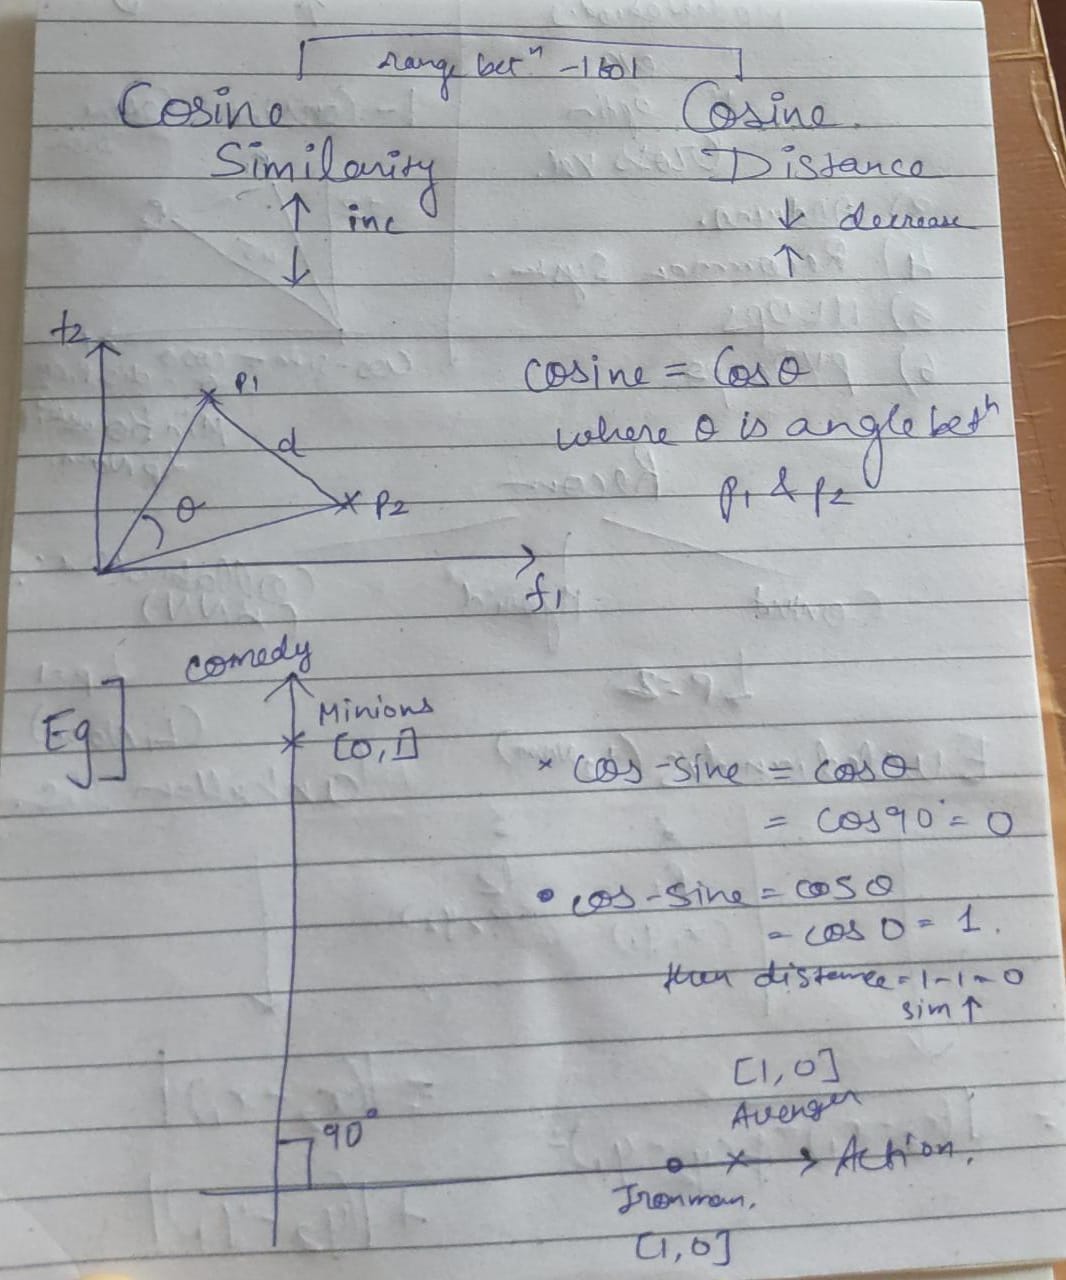 range betⁿ -1 to 1
Cosine Similarity
Cosine Distance
↑ inc
↓ decrease
↓
↑
f2
p1
d
θ
p2
f1
cosine = Cosθ
where θ is angle betⁿ
p1 & p2
Eg]
comedy
Minions
[0,1]
* cos-sine = cosθ
= cos90° = 0
• cos-sine = cosθ
= cos 0 = 1.
then distance = 1-1 = 0
sim ↑
[1,0]
Avenger
90°
Action.
Ironman.
[1,0]